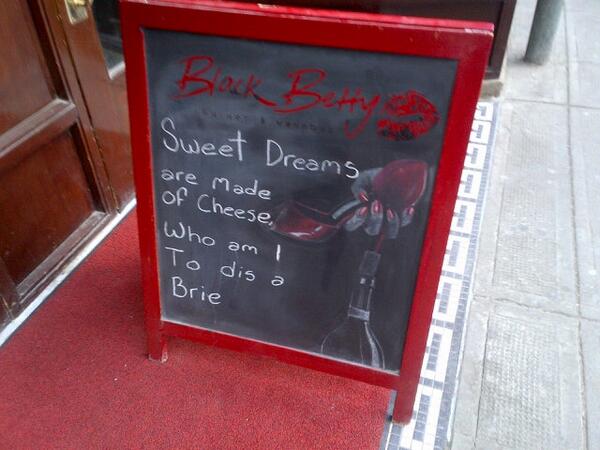 Black Betty
Sweet Dreams
are made
of Cheese,
Who am I
To dis a
Brie